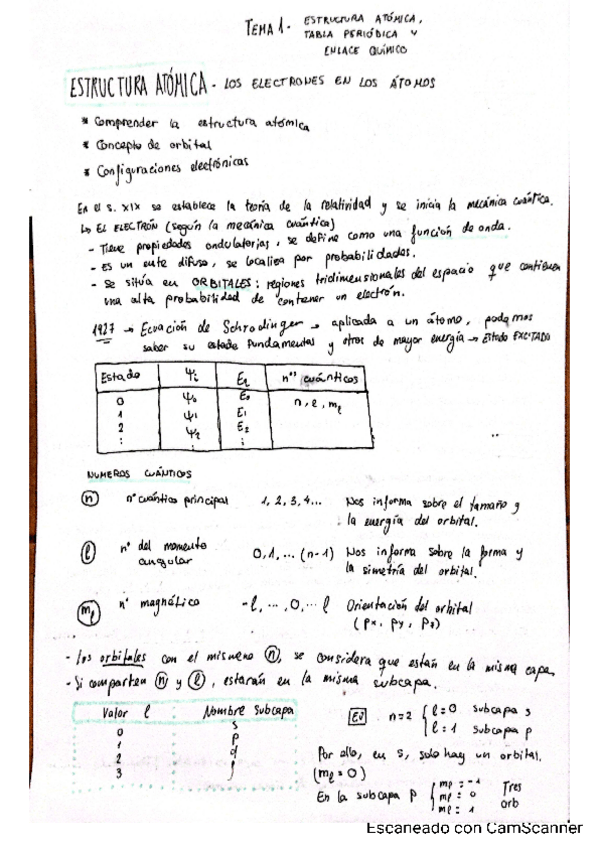 TEMA 1. ESTRUCTURA ATÓMICA,
TABLA PERIÓDICA Y
ENLACE QUÍMICO
ESTRUCTURA ATÓMICA - LOS ELECTRONES EN LOS ÁTOMOS
* Comprender la estructura atómica
* Concepto de orbital
* Configuraciones electrónicas
En el s. XIX se establece la teoría de la relatividad y se inicia la mecánica cuántica.
↳ EL ELECTRÓN (según la mecánica cuántica)
- Tiene propiedades ondulatorias, se define como una función de onda.
- Es un ente difuso, se localiza por probabilidades.
- Se sitúa en ORBITALES: regiones tridimensionales del espacio que contienen
una alta probabilidad de contener un electrón.
1927 → Ecuación de Schrodinger → aplicada a un átomo, podemos
saber su estado fundamental y otros de mayor energía → Estado EXCITADO
Estado Ψi Ei nos cuánticos
0 Ψ0 E0 n, l, ml
1 Ψ1 E1
2 Ψ2 E2
: : :
NUMEROS CUÁNTICOS
n nº cuántico principal 1, 2, 3, 4... Nos informa sobre el tamaño y
la energía del orbital.
l nº del momento angular 0, 1, ... (n-1) Nos informa sobre la forma y
la simetría del orbital.
ml nº magnético -l, ..., 0, ... l Orientación del orbital
(px, py, pz)
- Los orbitales con el mismo n, se considera que están en la misma capa.
- Si comparten n y l, estarán en la misma subcapa.
Valor l Nombre subcapa
0 s
1 p
2 d
3 f
EJ n=2 { l=0 subcapa s
l=1 subcapa p
Por ello, en s, solo hay un orbital.
(ml=0)
En la subcapa p { ml = -1
ml = 0
ml = 1
Tres
orb
Escaneado con CamScanner